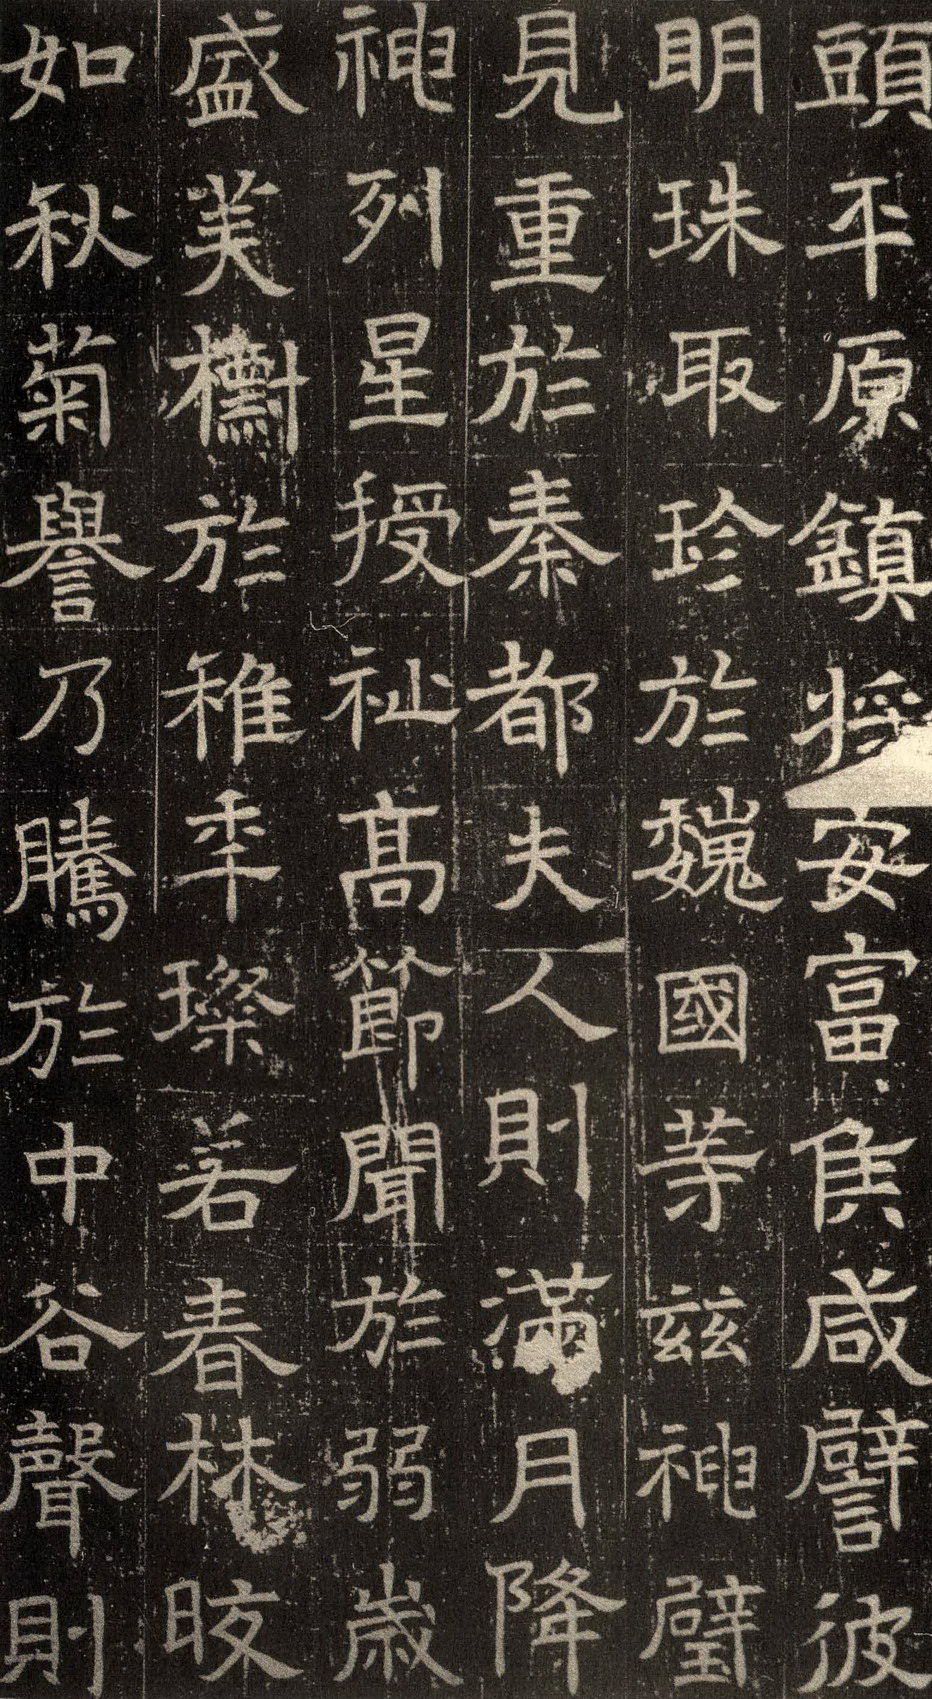 頭平原鎮將安富侯咸譬彼
明珠取珍於魏國等兹神璧
見重於秦都夫人則滿月降
神列星授祉髙節聞於弱歳
盛美樹於稚年璨若春林晈
如秋菊譽乃騰於中谷聲則